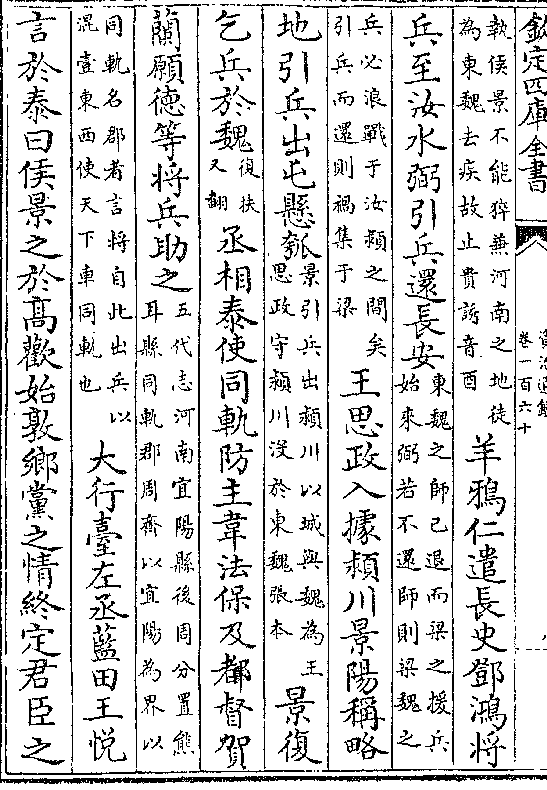 欽定四庫全書
資治通鑑
卷一百六十
執侯景不能猝兼河南之地徒
為東魏去疾故止貴誘音酉
羊鴉仁遣長史鄧鴻將
兵至汝水弼引兵還長安
東魏之師已退而梁之援兵
始來弼若不還師則梁魏之
兵必浪戰于汝潁之間矣
引兵而還則禍集于梁
王思政入據潁川景陽稱略
地引兵出屯懸瓠
景引兵出潁川以城與魏為王
思政守潁川沒於東魏張本
景復
乞兵於魏
復扶
又翻
丞相泰使同軌防主韋法保及都督賀
蘭願德等將兵助之
五代志河南宜陽縣後周分置熊
耳縣同軌郡周齊以宜陽為界以
同軌名郡者言將自此出兵以
混壹東西使天下車同軌也
大行臺左丞藍田王悦
言於泰曰侯景之於髙歡始敦鄉黨之情終定君臣之